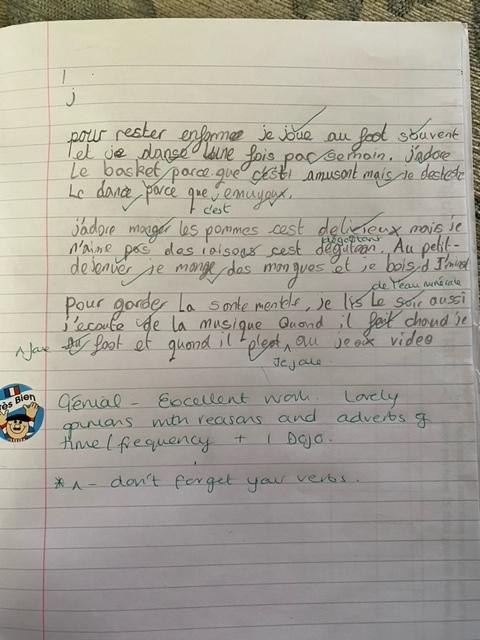 l
j
pour rester enforme je joue au foot souvent
et je danse une fois par semain. j'adore
Le basket parce que c'est amusant mais je deteste
La dance parce que j'ennuyoux.
c'est
j'adore manger les pommes cest delivieux mais je
n'aime pas des raisons cest degutaan. Au petit-
dégoûtant
dejenuer je mange das mangues et je bois d
de l'eau minérale
Pour garder La sante mentale, je lis Le soir aussi
j'ecoute de la musique Quand il fait chaud je
^ Joue au foot et quand il pleut ^ au jeux video
Je joue
Très Bien
Génial - Excellent work. Lovely
opinions with reasons and adverbs of
time/frequency + 1 Dojo.
* ^ - don't forget your verbs.